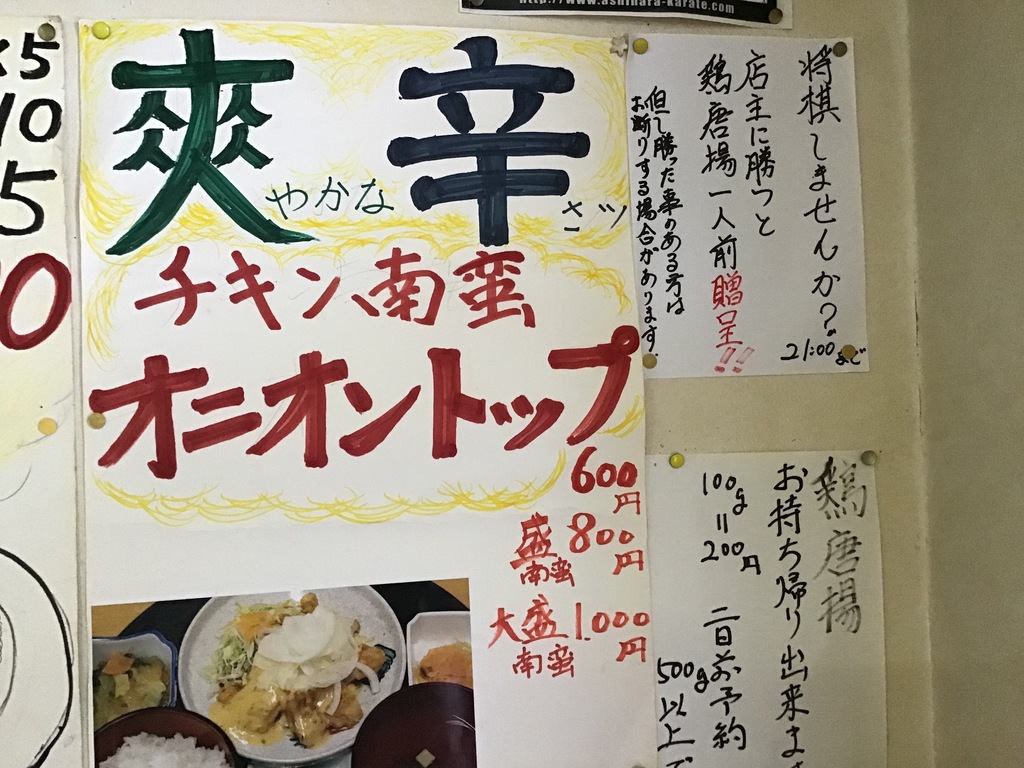 http://www.ashihara-karate.com
×5
10
5
0
爽やかな
辛さッ
チキン南蛮
オニオントップ
600円
盛南蛮 800円
大盛南蛮 1.000円
将棋しませんか？
21:00まで
店主に勝つと
鶏唐揚一人前贈呈!!
但し勝った事のある方は
お断りする場合があります.
鶏唐揚
お持ち帰り出来ま
100g=200円
二日前予約
500g以上で